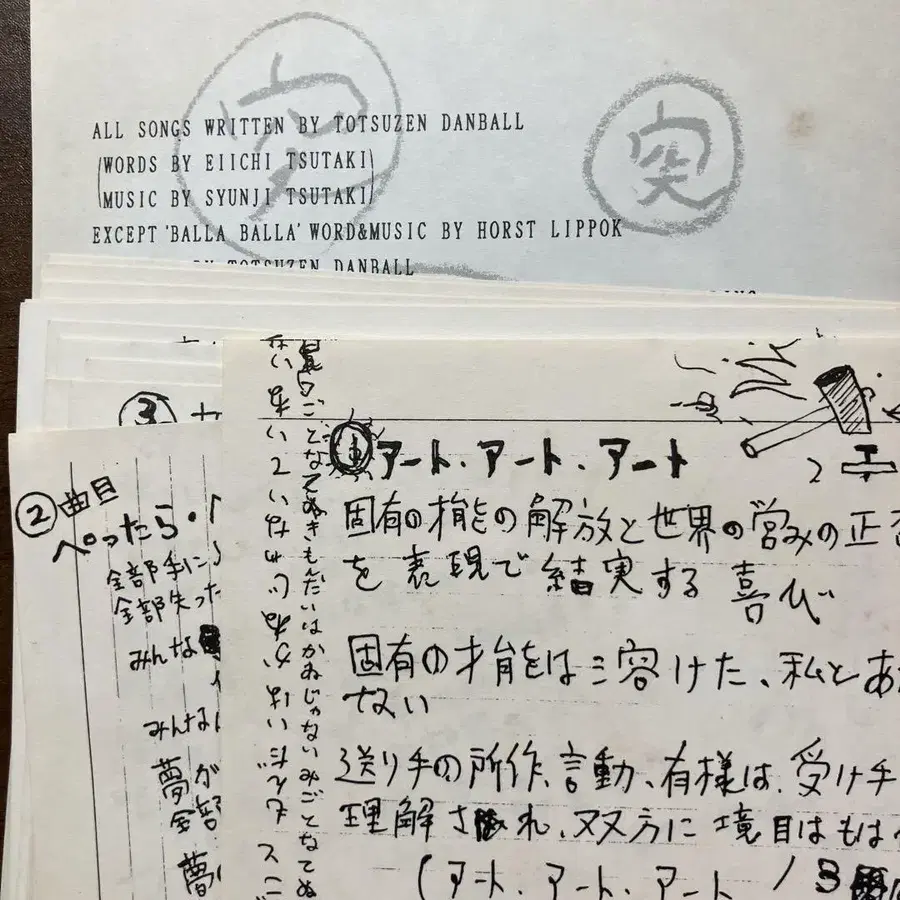 突
ALL SONGS WRITTEN BY TOTSUZEN DANBALL
(WORDS BY EIICHI TSUTAKI)
(MUSIC BY SYUNJI TSUTAKI)
EXCEPT 'BALLA BALLA' WORD&MUSIC BY HORST LIPPOK
BY TOTSUZEN DANBALL
③
②曲目
ぺったら・
全部手に
全部失った
みんな
みんなに
夢が
全部
夢
①アート・アート・アート
固有の才能の解放と世界の営みの正否
を表現で結実する喜び
固有の才能は溶けた、私とあ
ない
送り手の所作、言動、有様は、受け手
理解され、双方に境目はもは
(アート・アート・アート